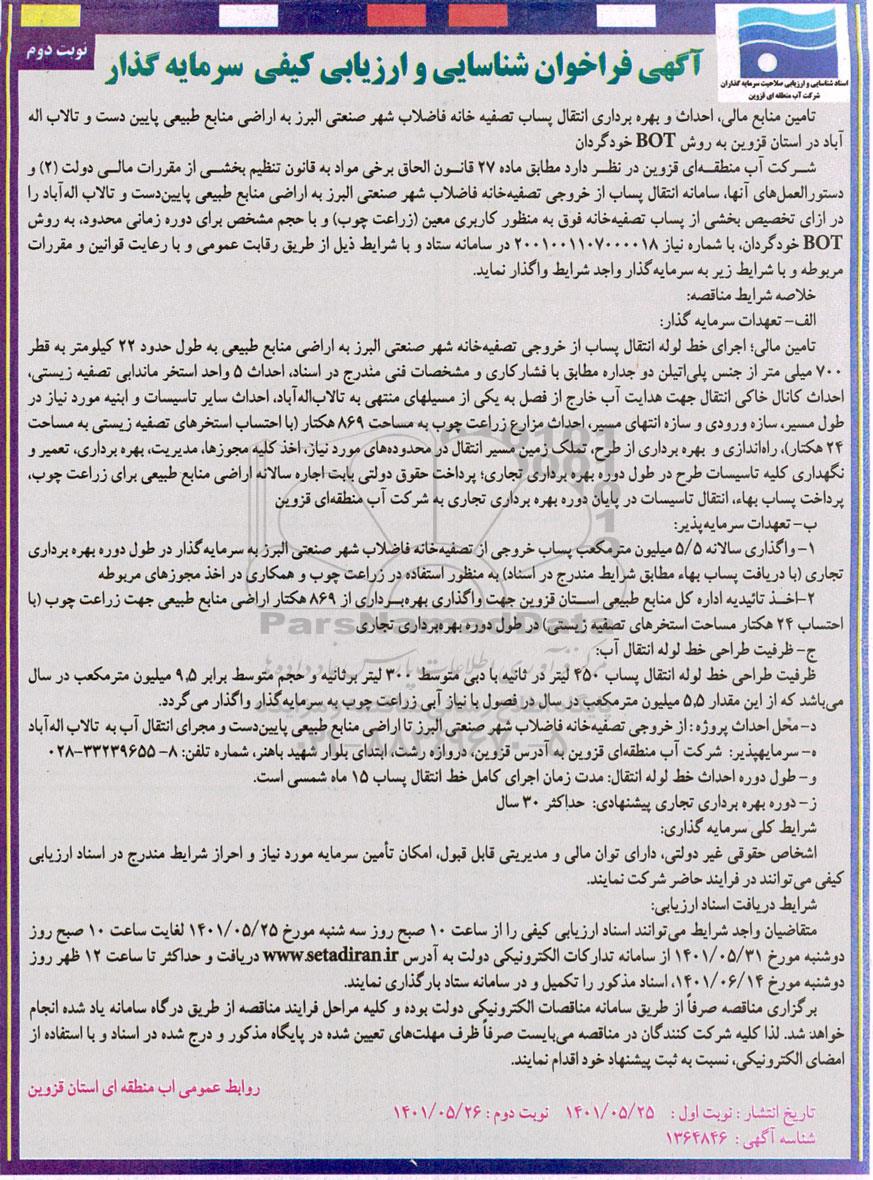 نوبت دوم
آگهی فراخوان شناسایی و ارزیابی کیفی سرمایه گذار
اسناد شناسایی و ارزیابی صلاحیت سرمایه گذاران
شرکت آب منطقه ای قزوین
تامین منابع مالی، احداث و بهره برداری انتقال پساب تصفیه خانه فاضلاب شهر صنعتی البرز به اراضی منابع طبیعی پایین دست و تالاب اله
آباد در استان قزوین به روش BOT خودگردان
شرکت آب منطقه‌ای قزوین در نظر دارد مطابق ماده ۲۷ قانون الحاق برخی مواد به قانون تنظیم بخشی از مقررات مالی دولت (۲) و
دستورالعمل‌های آنها، سامانه انتقال پساب از خروجی تصفیه‌خانه فاضلاب شهر صنعتی البرز به اراضی منابع طبیعی پایین‌دست و تالاب اله‌آباد را
در ازای تخصیص بخشی از پساب تصفیه‌خانه فوق به منظور کاربری معین (زراعت چوب) و با حجم مشخص برای دوره زمانی محدود، به روش
BOT خودگردان، با شماره نیاز ۲۰۰۱۰۰۱۱۰۷۰۰۰۰۱۸ در سامانه ستاد و با شرایط ذیل از طریق رقابت عمومی و با رعایت قوانین و مقررات
مربوطه و با شرایط زیر به سرمایه‌گذار واجد شرایط واگذار نماید.
خلاصه شرایط مناقصه:
الف- تعهدات سرمایه گذار:
تامین مالی؛ اجرای خط لوله انتقال پساب از خروجی تصفیه‌خانه شهر صنعتی البرز به اراضی منابع طبیعی به طول حدود ۲۲ کیلومتر به قطر
۷۰۰ میلی متر از جنس پلی‌اتیلن دو جداره مطابق با فشارکاری و مشخصات فنی مندرج در اسناد، احداث ۵ واحد استخر ماندابی تصفیه زیستی،
احداث کانال خاکی انتقال جهت هدایت آب خارج از فصل به یکی از مسیلهای منتهی به تالاب‌اله‌آباد، احداث سایر تاسیسات و ابنیه مورد نیاز در
طول مسیر، سازه ورودی و سازه انتهای مسیر، احداث مزارع زراعت چوب به مساحت ۸۶۹ هکتار (با احتساب استخرهای تصفیه زیستی به مساحت
۲۴ هکتار)، راه‌اندازی و بهره برداری از طرح، تملک زمین مسیر انتقال در محدوده‌های مورد نیاز، اخذ کلیه مجوزها، مدیریت، بهره برداری، تعمیر و
نگهداری کلیه تاسیسات طرح در طول دوره بهره برداری تجاری؛ پرداخت حقوق دولتی بابت اجاره سالانه اراضی منابع طبیعی برای زراعت چوب،
پرداخت پساب بهاء، انتقال تاسیسات در پایان دوره بهره برداری تجاری به شرکت آب منطقه‌ای قزوین
ب- تعهدات سرمایه‌پذیر:
۱- واگذاری سالانه ۵/۵ میلیون مترمکعب پساب خروجی از تصفیه‌خانه فاضلاب شهر صنعتی البرز به سرمایه‌گذار در طول دوره بهره برداری
تجاری (با دریافت پساب بهاء مطابق شرایط مندرج در اسناد) به منظور استفاده در زراعت چوب و همکاری در اخذ مجوزهای مربوطه
۲-اخذ تائیدیه اداره کل منابع طبیعی استان قزوین جهت واگذاری بهره‌برداری از ۸۶۹ هکتار اراضی منابع طبیعی جهت زراعت چوب (با
احتساب ۲۴ هکتار مساحت استخرهای تصفیه زیستی) در طول دوره بهره‌برداری تجاری
ج- ظرفیت طراحی خط لوله انتقال آب:
ظرفیت طراحی خط لوله انتقال پساب ۴۵۰ لیتر در ثانیه با دبی متوسط ۳۰۰ لیتر برثانیه و حجم متوسط برابر ۹,۵ میلیون مترمکعب در سال
می‌باشد که از این مقدار ۵,۵ میلیون مترمکعب در سال در فصول با نیاز آبی زراعت چوب به سرمایه‌گذار واگذار می‌گردد.
د- محل احداث پروژه : از خروجی تصفیه‌خانه فاضلاب شهر صنعتی البرز تا اراضی منابع طبیعی پایین‌دست و مجرای انتقال آب به تالاب اله‌آباد
ه- سرمایهپذیر: شرکت آب منطقه‌ای قزوین به آدرس قزوین، دروازه رشت، ابتدای بلوار شهید باهنر، شماره تلفن: ۸- ۳۳۲۳۹۶۵۵-۰۲۸
و- طول دوره احداث خط لوله انتقال: مدت زمان اجرای کامل خط انتقال پساب ۱۵ ماه شمسی است.
ز- دوره بهره برداری تجاری پیشنهادی: حداکثر ۳۰ سال
شرایط کلی سرمایه گذاری:
اشخاص حقوقی غیر دولتی، دارای توان مالی و مدیریتی قابل قبول، امکان تأمین سرمایه مورد نیاز و احراز شرایط مندرج در اسناد ارزیابی
کیفی می‌توانند در فرایند حاضر شرکت نمایند.
شرایط دریافت اسناد ارزیابی:
متقاضیان واجد شرایط می‌توانند اسناد ارزیابی کیفی را از ساعت ۱۰ صبح روز سه شنبه مورخ ۱۴۰۱/۰۵/۲۵ لغایت ساعت ۱۰ صبح روز
دوشنبه مورخ ۱۴۰۱/۰۵/۳۱ از سامانه تدارکات الکترونیکی دولت به آدرس www.setadiran.ir دریافت و حداکثر تا ساعت ۱۲ ظهر روز
دوشنبه مورخ ۱۴۰۱/۰۶/۱۴، اسناد مذکور را تکمیل و در سامانه ستاد بارگذاری نمایند.
برگزاری مناقصه صرفاً از طریق سامانه مناقصات الکترونیکی دولت بوده و کلیه مراحل فرایند مناقصه از طریق درگاه سامانه یاد شده انجام
خواهد شد. لذا کلیه شرکت کنندگان در مناقصه می‌بایست صرفاً ظرف مهلت‌های تعیین شده در پایگاه مذکور و درج شده در اسناد و با استفاده از
امضای الکترونیکی، نسبت به ثبت پیشنهاد خود اقدام نمایند.
روابط عمومی اب منطقه ای استان قزوین
تاریخ انتشار : نوبت اول : ۱۴۰۱/۰۵/۲۵ نوبت دوم : ۱۴۰۱/۰۵/۲۶
شناسه آگهی : ۱۳۶۴۸۴۶
ParsNamadData